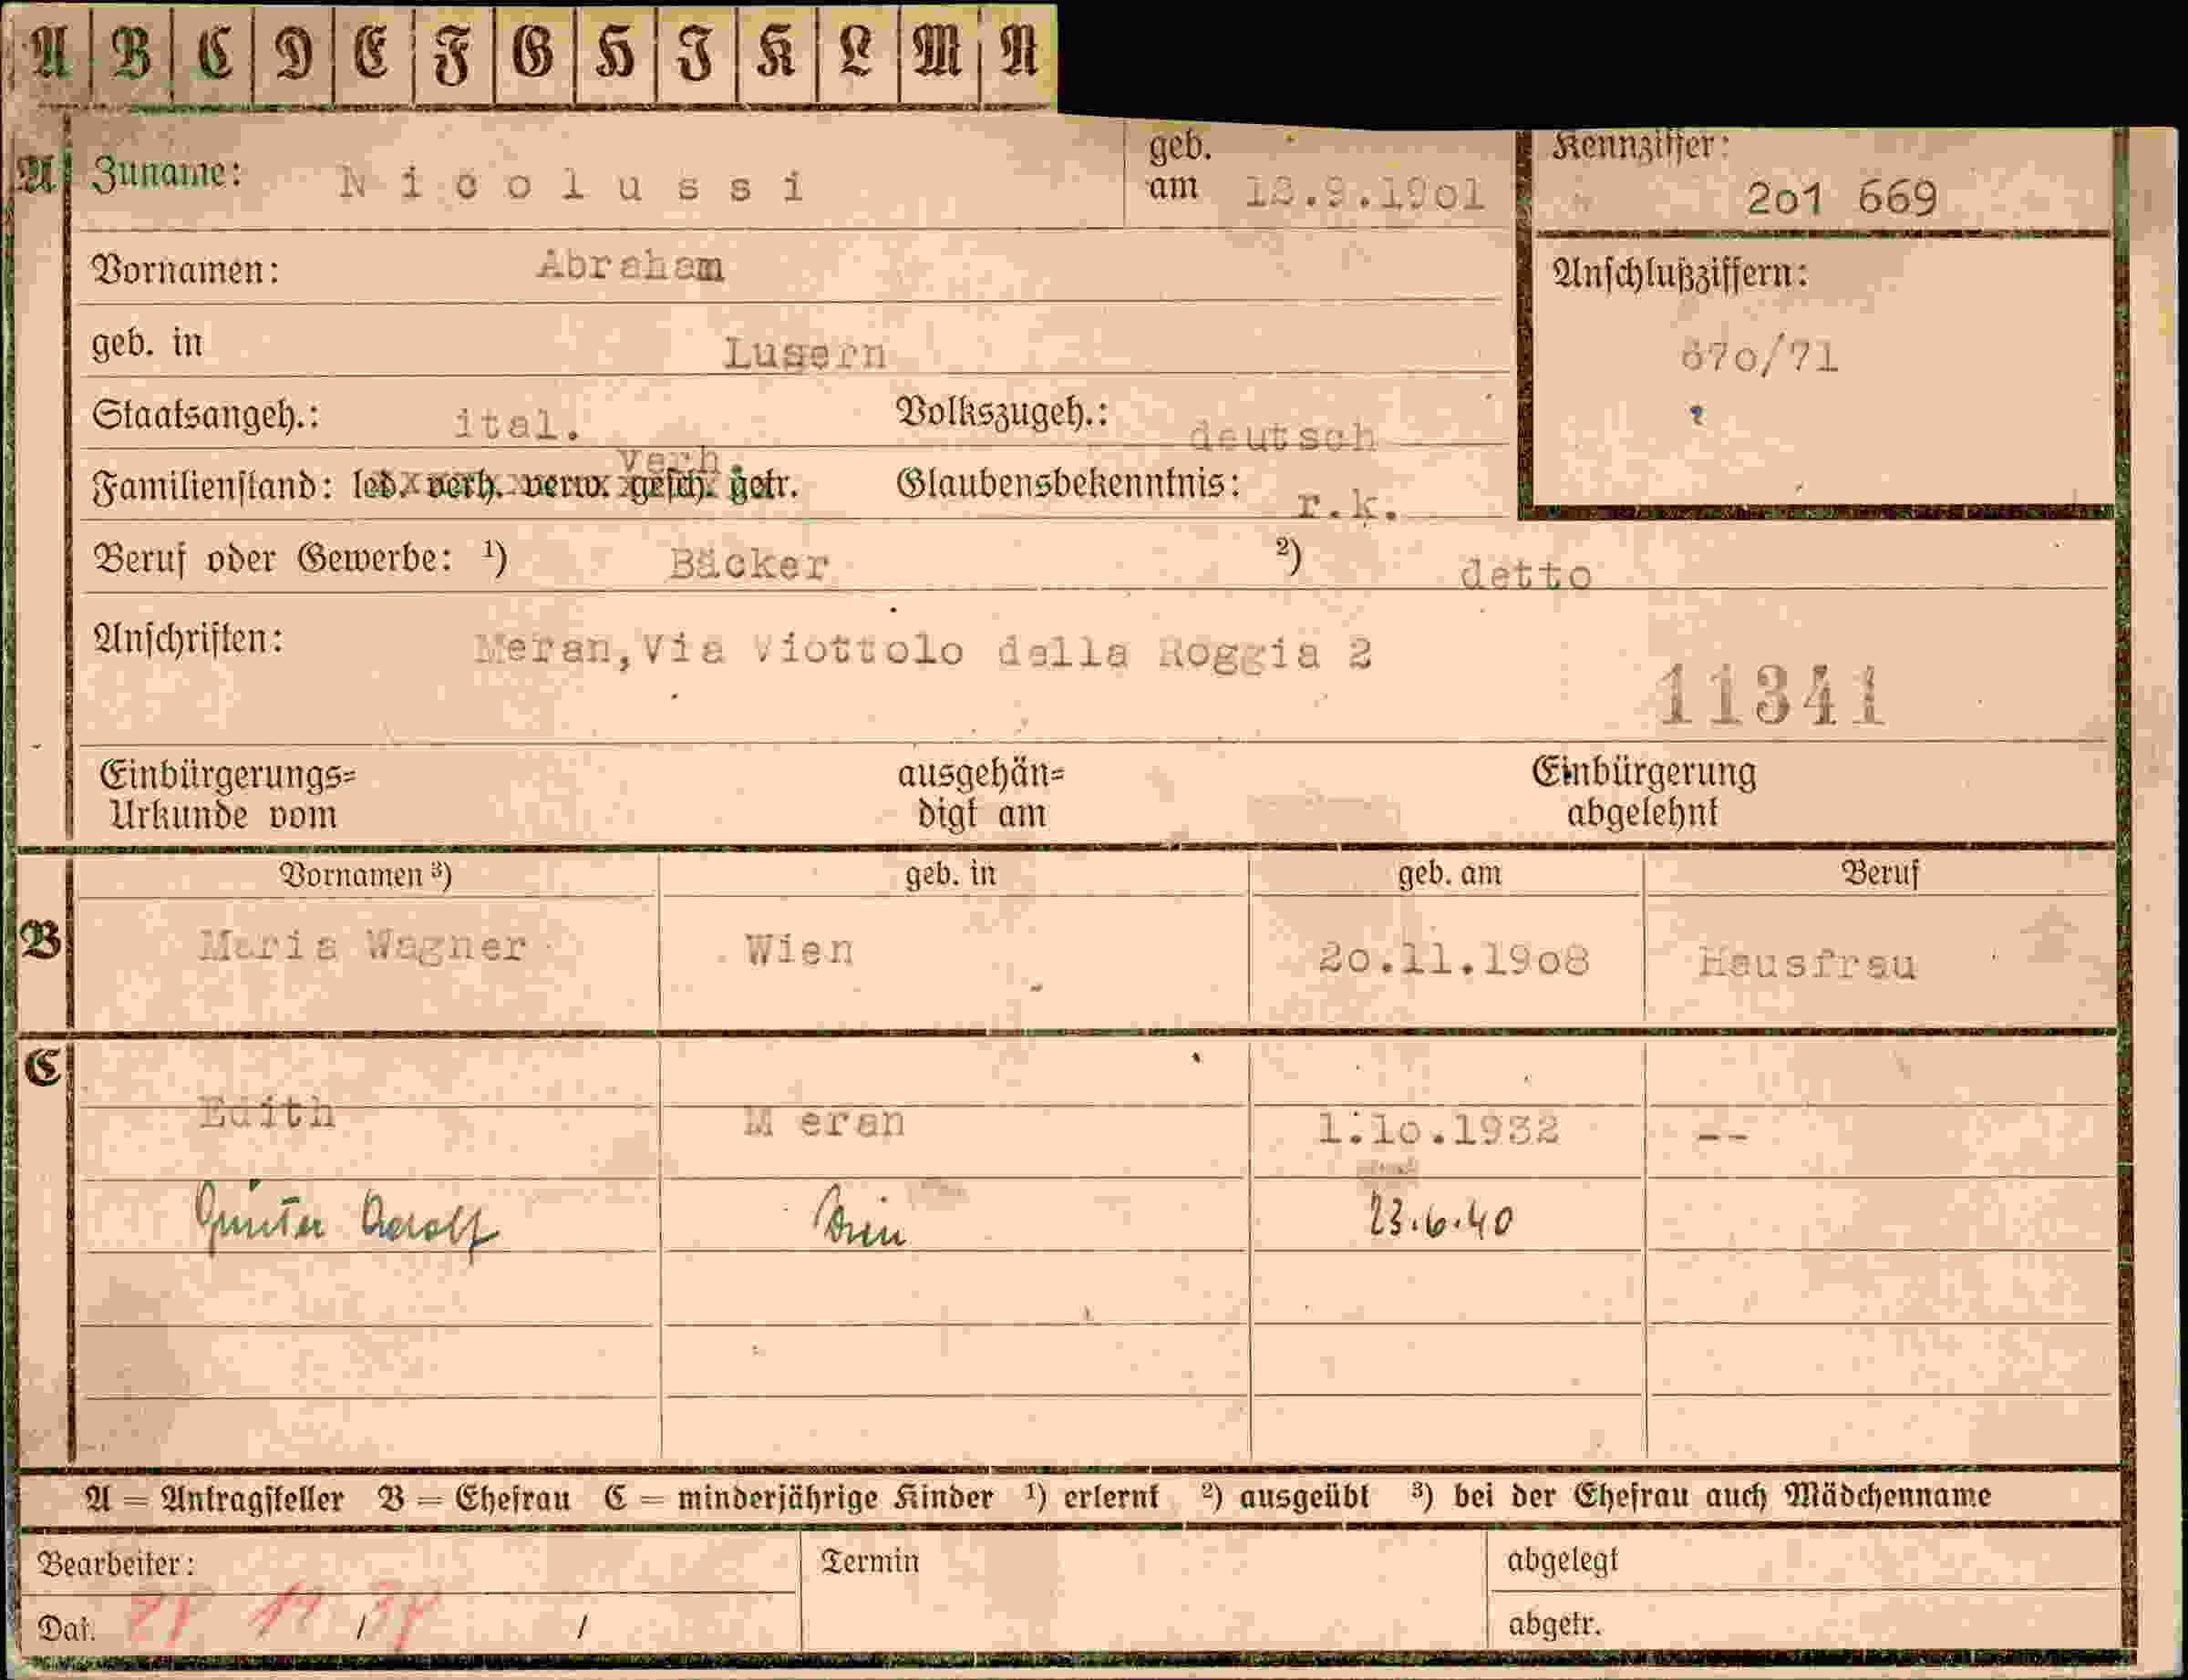 A B C D E F G H I K L M N
A Zuname: Nicolussi geb. am 18.9.19o1 Kennziffer: 2o1 669
Vornamen: Abraham Anschlußziffern:
geb. in Lusern 67o/71
Staatsangeh.: ital. Volkszugeh.: deutsch
Familienstand: led. verh. verw. gesch. getr. verh. Glaubensbekenntnis: r.k.
Beruf oder Gewerbe: ¹) Bäcker ²) detto
Anschriften: Meran,Via Viottolo della Roggia 2
11341
Einbürgerungs= ausgehän= Einbürgerung
Urkunde vom digt am abgelehnt
Vornamen ³) geb. in geb. am Beruf
B Maria Wagner Wien 2o.11.19o8 Hausfrau
C
Edith M eran 1.1o.1932 --
Günter Adolf Wien 23.6.40
A = Antragsteller B = Ehefrau C = minderjährige Kinder ¹) erlernt ²) ausgeübt ³) bei der Ehefrau auch Mädchenname
Bearbeiter: Termin abgelegt
Dat. / / abgetr.